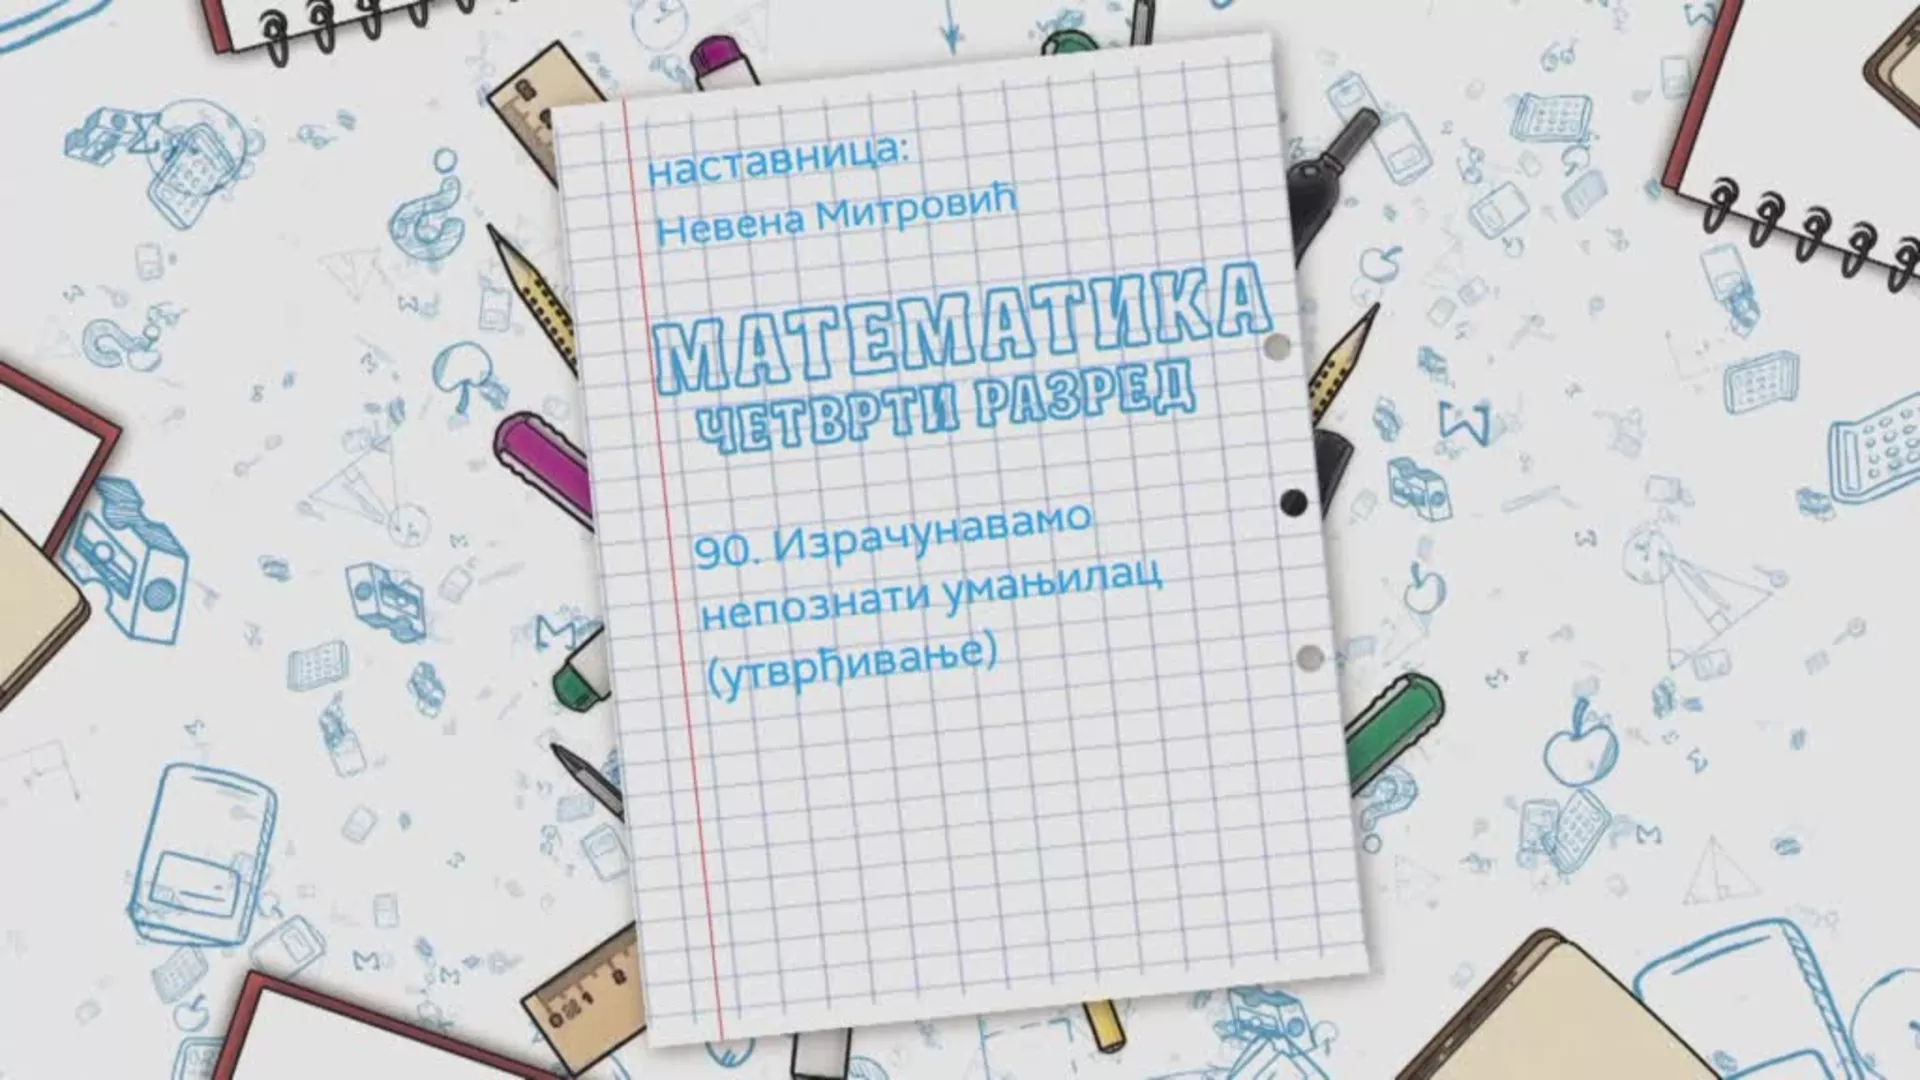 наставница:
Невена Митровић
МАТЕМАТИКА
ЧЕТВРТИ РАЗРЕД
90. Израчунавамо
непознати умањилац
(утврђивање)